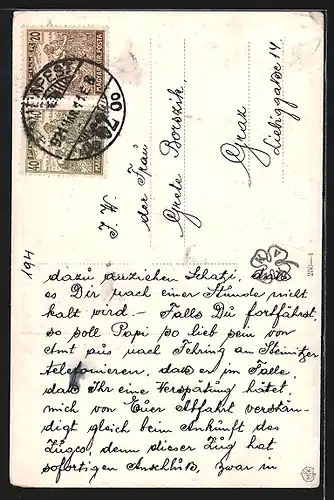 MAGYAR POSTA
20
MAGYAR POSTA
40
BUDAPEST
I. W.
der Frau
Grete Borszik.
Graz
Liebiggasse 14
194
250—1
dazu anziehen Schatzi, dass
es Dir nach einer Stunde nicht
kalt wird. — Falls Du fortfährst,
so soll Papi so lieb sein vom
Amt aus nach Fehring an Steinitzer
telefonieren, dass er im Falle
dass Ihr eine Verspätung hätet,
mich von Euer Abfahrt verstän-
digt gleich beim Ankunft des
Zuges, denn dieser Zug hat
sofortigen Anschluß, zwar in